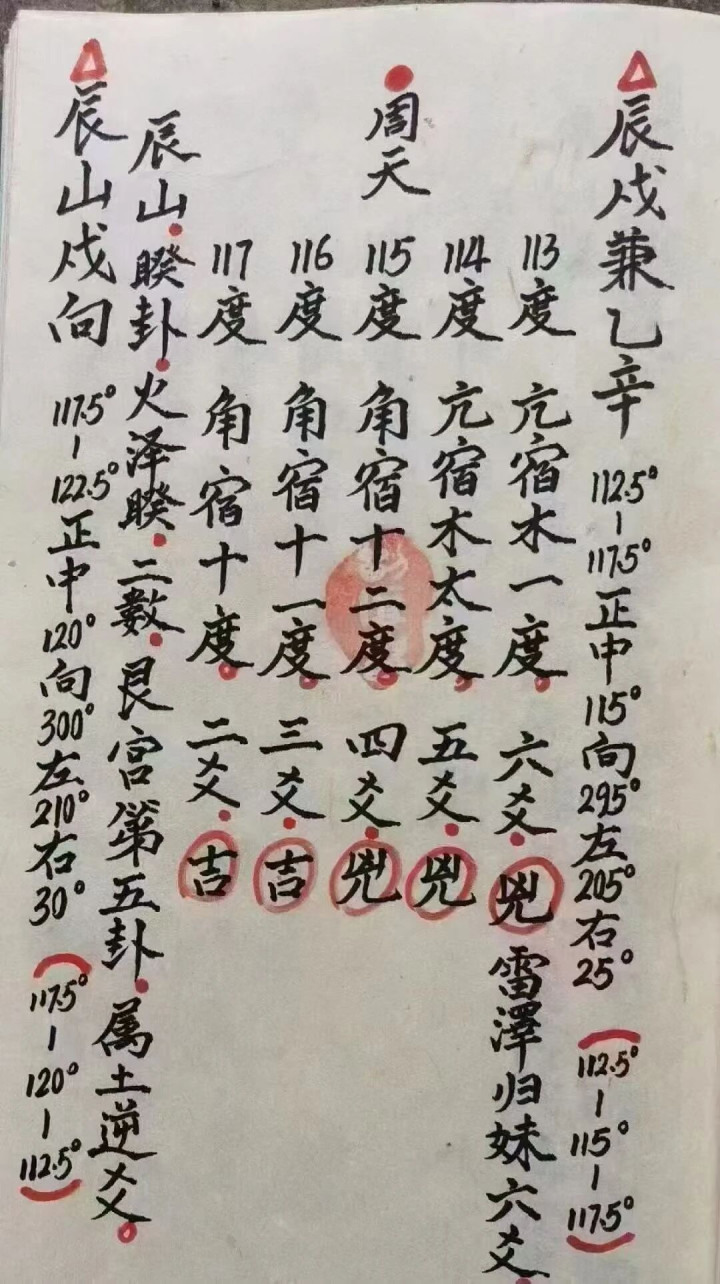 辰戌兼乙辛 112.5°-117.5°正中115°向295°左205°右25°(112.5°-115°-117.5°)
周天
113度 亢宿木一度。六爻。兇 雷澤归妹六爻。
114度 亢宿木太度。五爻。兇
115度 角宿十二度。四爻。兇
116度 角宿十一度。三爻。吉
117度 角宿十度。二爻。吉
辰山。睽卦。火泽睽。二數。艮宫第五卦。属土逆爻。
辰山戌向 117.5°-122.5°正中120°向300°左210°右30°(117.5°-120°-112.5°)